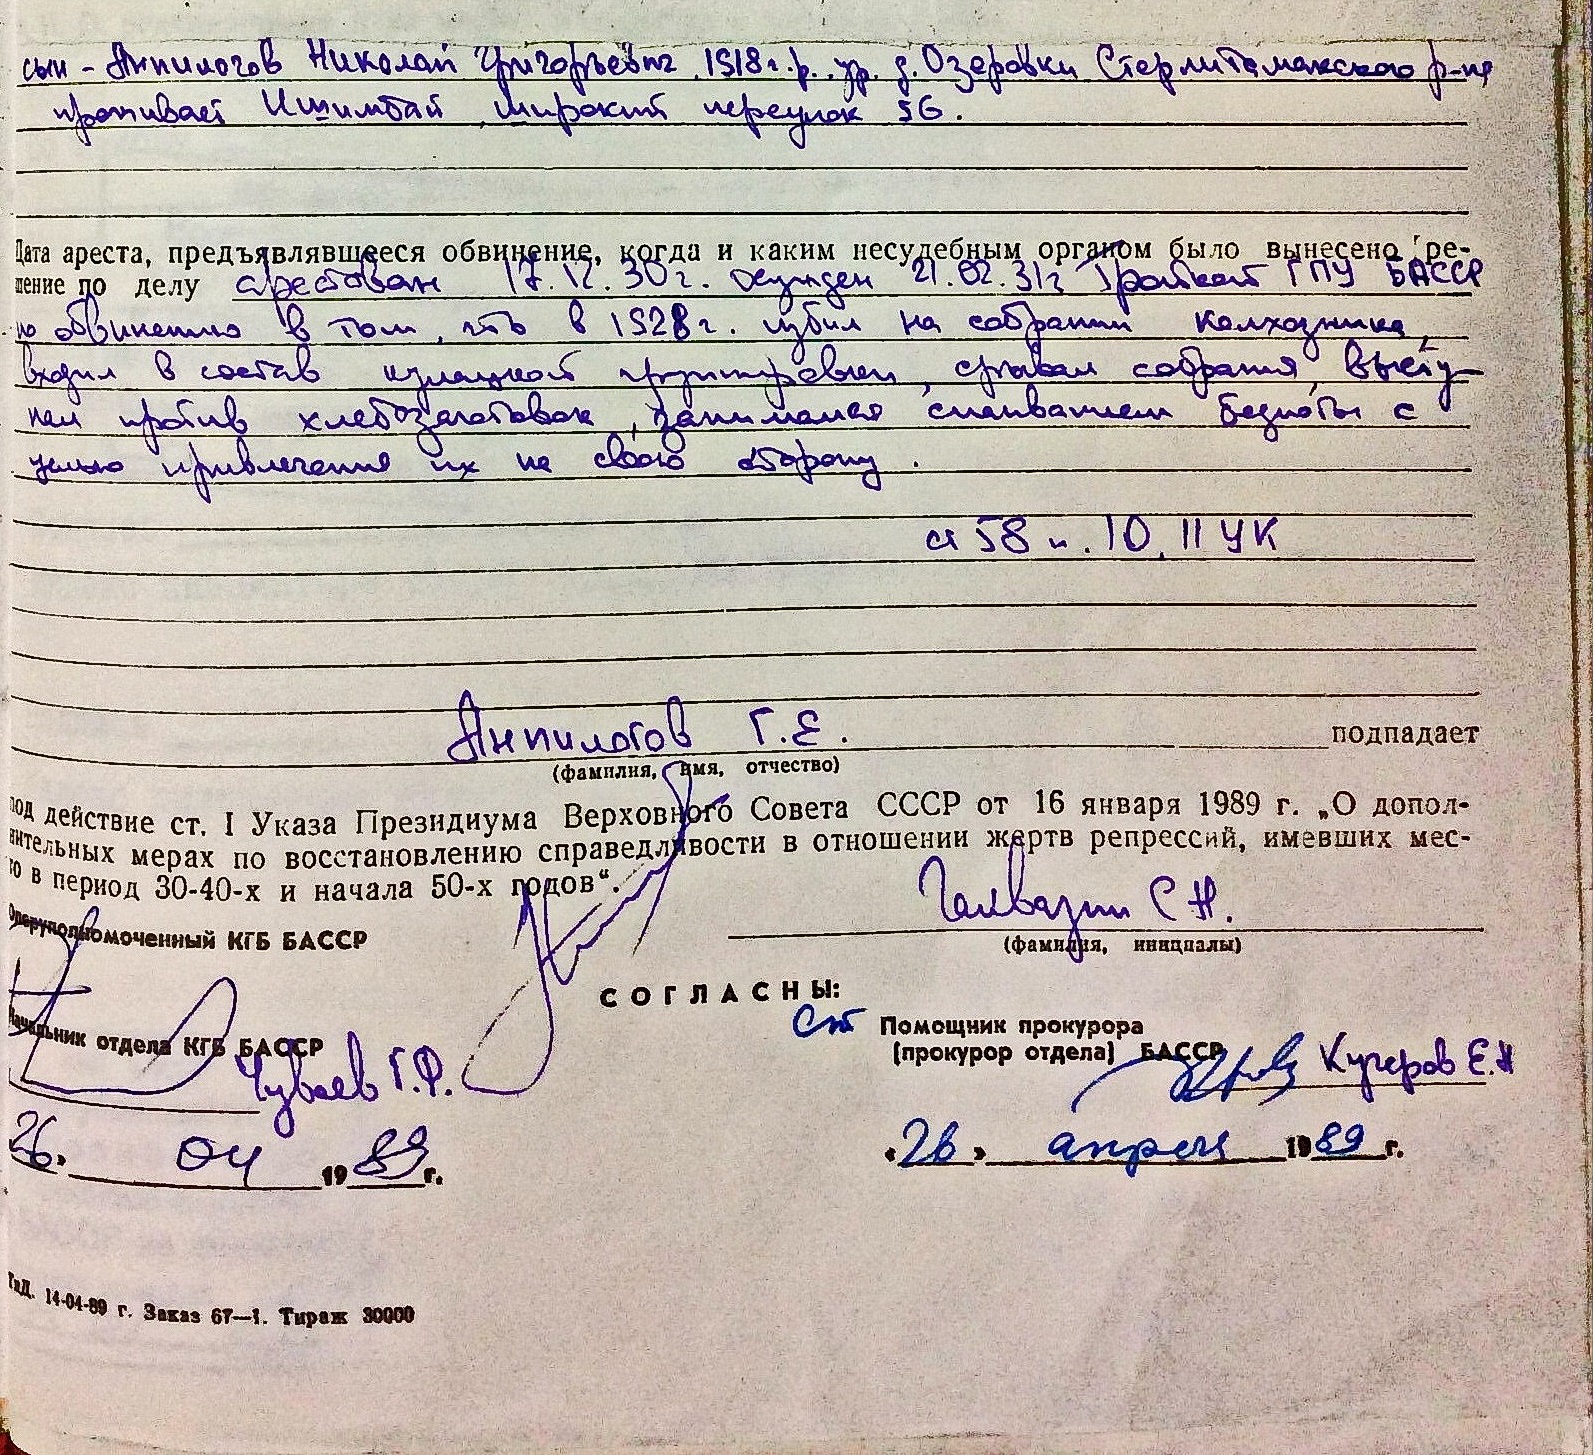 сын - Анпилогов Николай Григорьевич 1918 г.р. ур. д. Озеровки Стерлитамакского р-на
проживает Ишимбай, широкий переулок 56.
Дата ареста, предъявлявшееся обвинение, когда и каким несудебным органом было вынесено ре-
шение по делу арестован 17.12.30г. осужден 21.02.31г Тройкой ГПУ БАССР
по обвинению в том, что в 1928 г. избил на собрании колхозника,
входил в состав кулацкой группировки, срывал собрания, высту-
пал против хлебозаготовок, занимался спаиванием бедноты с
целью привлечения их на свою сторону.
ст 58 п. 10, 11 УК
Анпилогов Г.Е. подпадает
(фамилия, имя, отчество)
под действие ст. I Указа Президиума Верховного Совета СССР от 16 января 1989 г. „О допол-
нительных мерах по восстановлению справедливости в отношении жертв репрессий, имевших мес-
то в период 30-40-х и начала 50-х годов“.
Оперуполномоченный КГБ БАССР С.Н.
(фамилия, инициалы)
СОГЛАСНЫ:
Начальник отдела КГБ БАССР Чуваев Г.Ф.
ст Помощник прокурора
(прокурор отдела) БАССР Кучеров Е.Н
26» 04 1989 г.
«26» апреля 1989 г.
14-04-89 г. Заказ 67—1. Тираж 30000